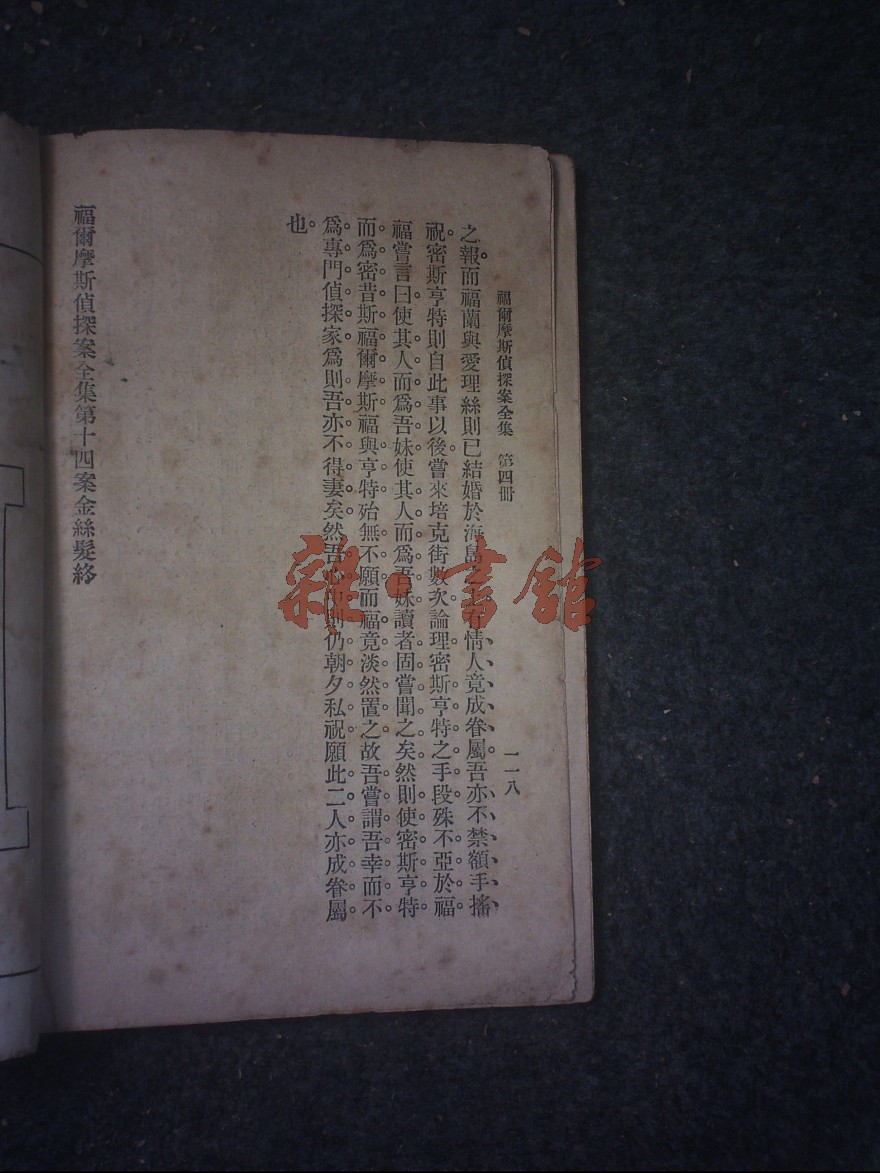 福爾摩斯偵探案全集 第四冊
一一八
之報而福蘭與愛理絲則已結婚於海島有情人竟成眷屬吾亦不禁額手搖
祝密斯亨特則自此事以後嘗來培克街數次論理密斯亨特之手段殊不亞於福
福嘗言曰使其人而爲吾妹使其人而爲吾妹讀者固嘗聞之矣然則使密斯亨特
而爲密昔斯福爾摩斯福與亨特殆無不願而福竟淡然置之故吾嘗謂吾幸而不
爲專門偵探家爲則吾亦不得妻矣然吾心中則仍朝夕私祝願此二人亦成眷屬
也。
福爾摩斯偵探案全集第十四案金絲髮終
雜·書館